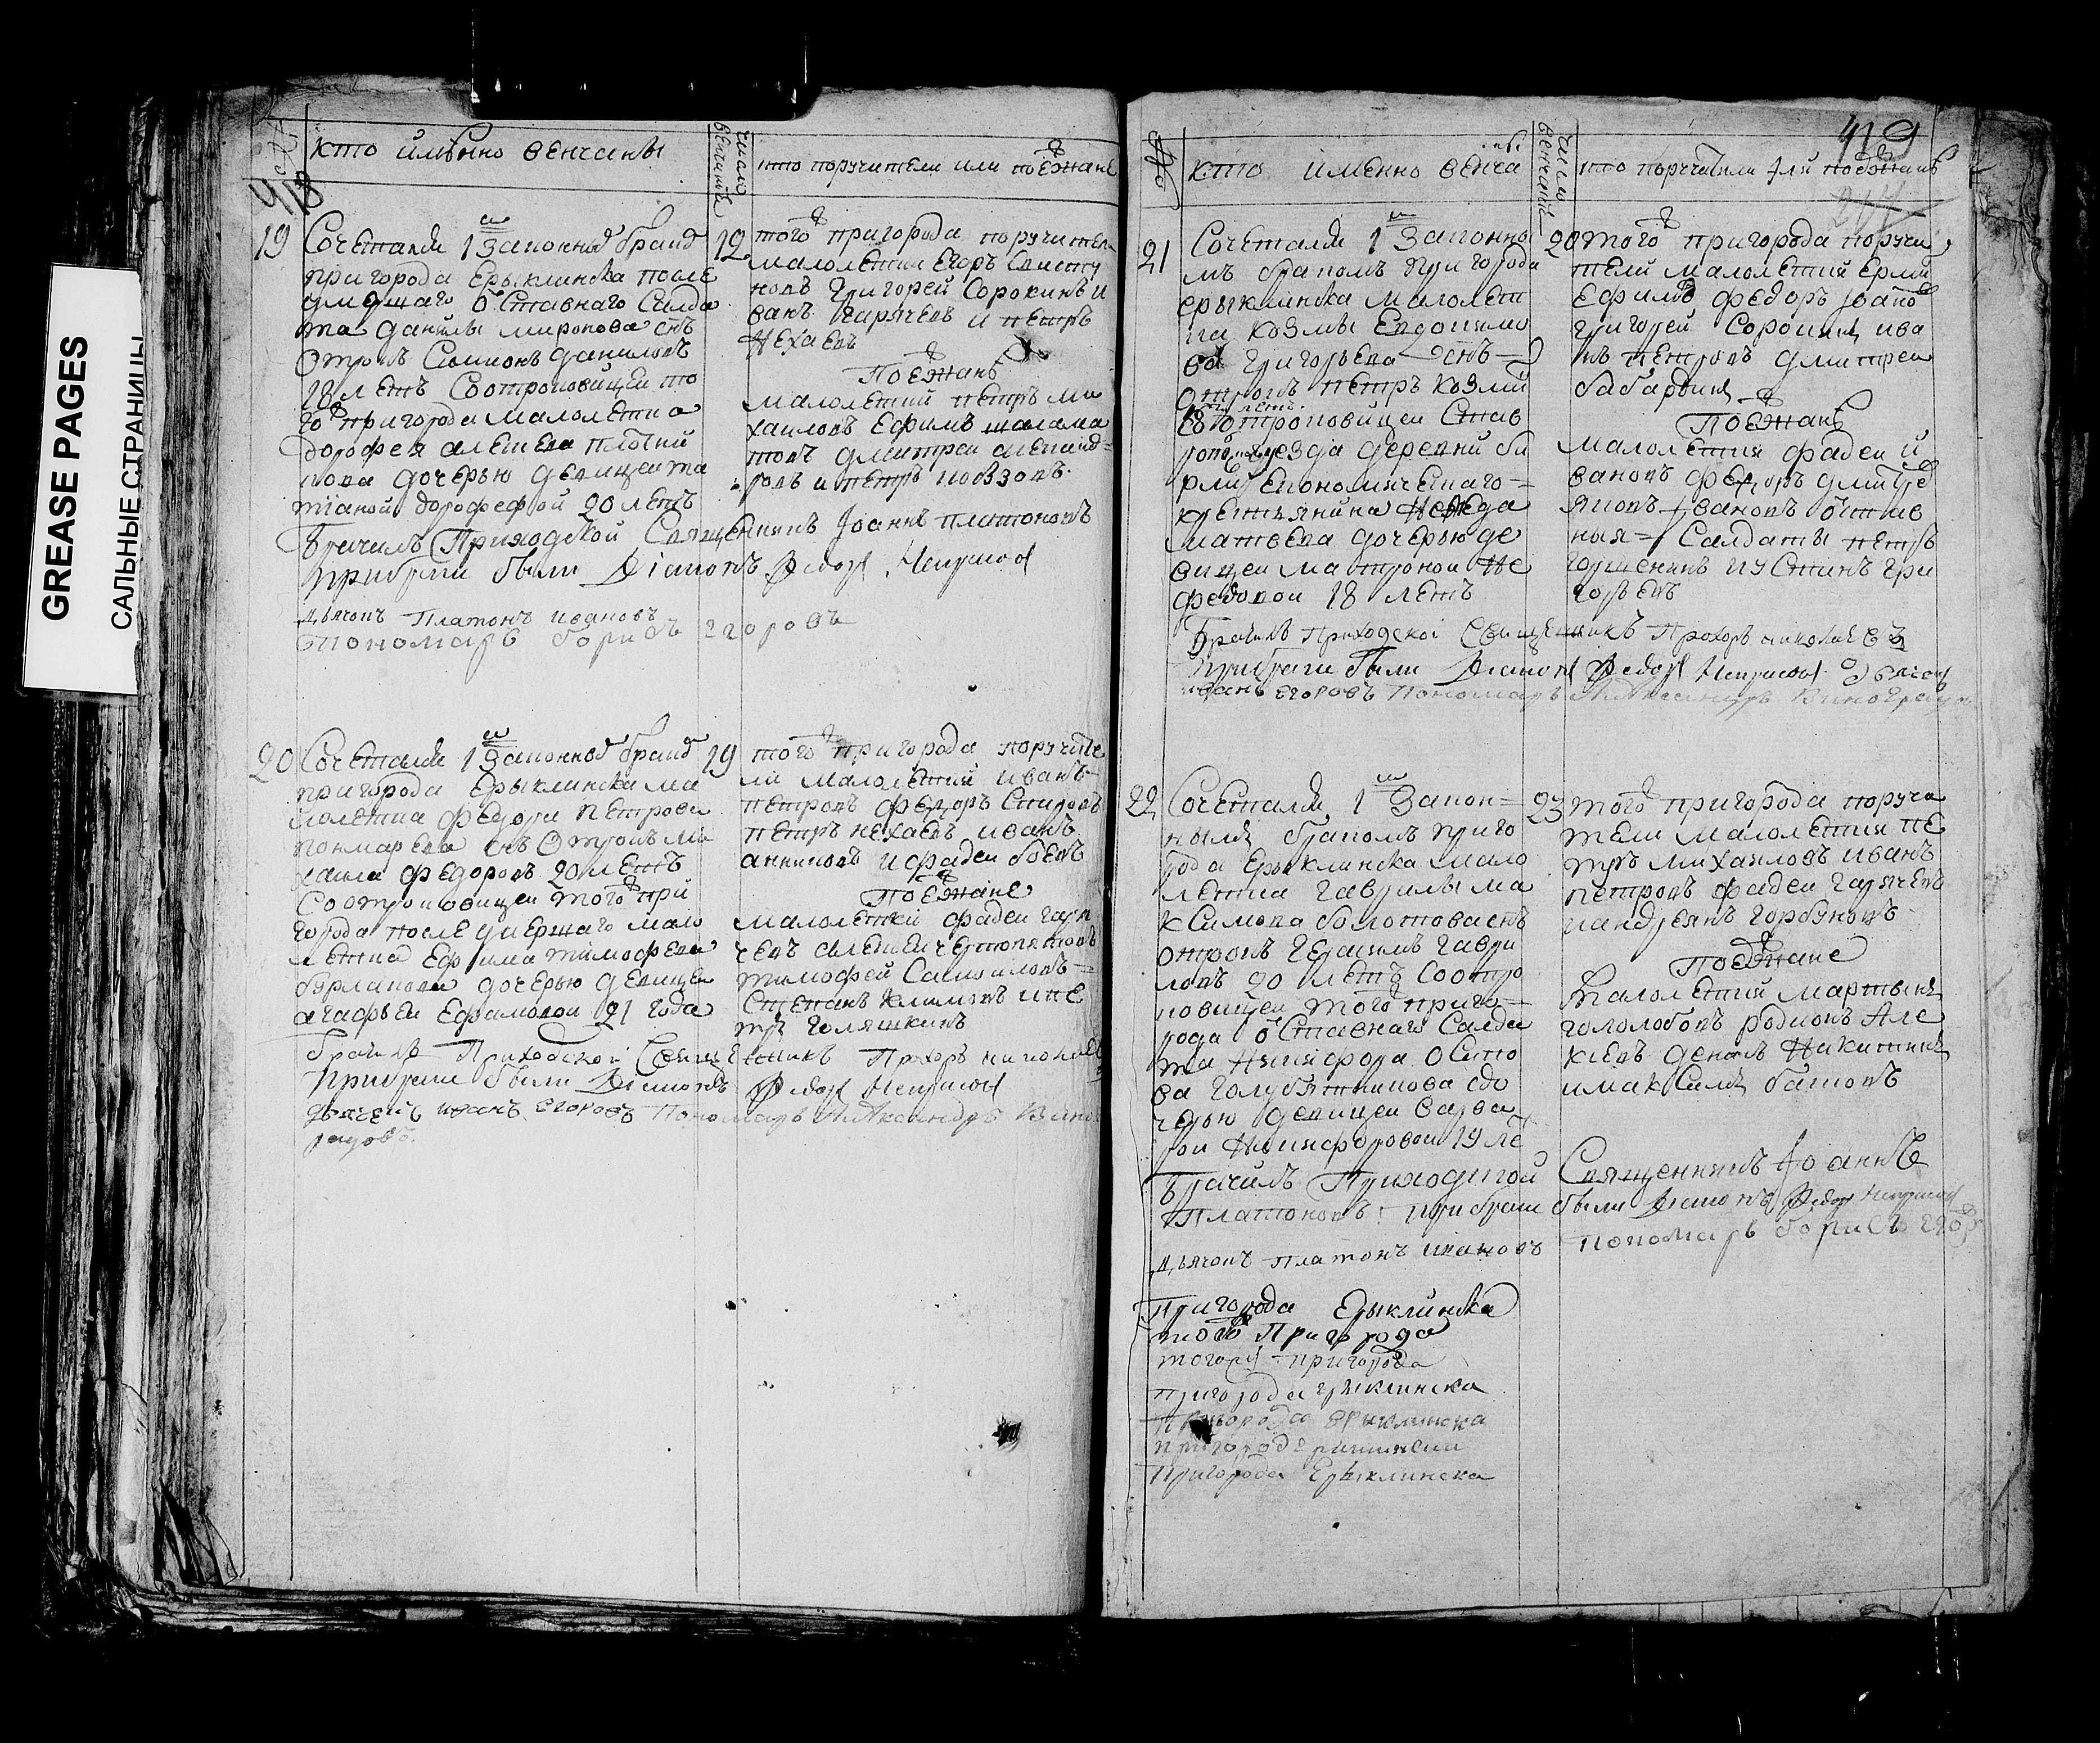 GREASE PAGES
САЛЬНЫЕ СТРАНИЦЫ
418
кто имѣнно венчаны
кто поручители или поѣзжанѣ
19
Сочетался 1м законнымъ бракомъ
пригорода Ерыклинска после
умершаго отставнаго Салда
та данилы миронова снъ
отрокъ Симионъ даниловъ
18 летъ Соотроковицеи то
го пригорода малолетна
дорофея алеѯеева плотни
кова дочерью девицеи та
тианой дорофефой 20 летъ
12
того пригорода поручители
малолетнии Егоръ
новъ Григорей Сорокинъ и
ванъ Гарячевъ и петръ
Нехаевъ
Поѣзжанѣ
малолетнии петръ ми
хаиловъ Ефимъ шалама
товъ дмитреи алеѯанд=
ровъ и петръ
Брачилъ Приходской Священникъ Iоаннъ платоновъ
при браке были Дiаконъ Ѳедоръ
дьячокъ Платонъ ивановъ
Пономарь борисъ егоровъ
20
Сочетался 1м законнымъ бракомъ
пригорода Ерыклинска ма
лолетна Федора Петрова
понмарева снъ Отрокъ ми
хаила федоровъ 20 летъ
Соотроковицеи того при
города после умершаго мало
летна Ефима тимофеева
бурлакова дочерью девицеи
агафьеи Ефимовои 21 года
19
того пригорода поручите
ли малолетнии иванъ
петровъ федоръ Спидовъ
петръ нехаевъ иванъ
аникиовъ и фадеи боевъ
поѣзжане
малолетнеи фадеи гаря
чевъ алеѯеи
тимофей Самоиловъ=
Степанъ климовъ и пе
тръ Голяшкинъ
брачилъ Приходской Священникъ Прохоръ николаевъ
При браке были Дiаконъ Ѳедоръ
дьячекъ иванъ егоровъ Пономарь Алѯандръ Виног
радовъ.
419
кто имѣнно венчаны
кто поручители или поѣзжанѣ
21
Сочетался 1м законны
мъ бракомъ пригорода
ерыклинска малолет
на козмы Евдокимо
ва Григорьева снъ
отрокъ петръ козмин
18 летъ
Соотроковицеи Став
ропол уезда деревни би
рли Економическаго=
крестьянина Нефеда
матвева дочерью де
вицеи матроной Не
федовой 18 летъ
20
того пригорода поручи
тели малолетнии Ерми
Ефимъ федоръ
григорей Сорокинъ ива
нъ петровъ дмитреи
бабаркинъ
Поѣзжанѣ
малолетнии фадеи и
вановъ федоръ дмитре
Ивановъ отстав
ныя= Салдаты петръ
горшенинъ иустинъ гри
горьевъ
Брачилъ Приходской Священникъ Прохоръ николаевъ
При браке были Дiаконъ Ѳедоръ дьячокъ
иванъ егоровъ Пономарь Алѯандръ Виноградо
22
Сочетался 1м Закон=
нымъ бракомъ приго
рода Ерыклинска мало
летна гаврилы ма
ксимова болотова снъ
отрокъ герасимъ гаври
ловъ 20 летъ Соотро
ковицеи того приго=
рода отставнаго Салда
та Никифора Осипо
ва голубятникова до
черью девицеи варва
рои Никифоровои 19 ле
23
того пригорода поручи
тели малолетния пе
тръ михаиловъ иванъ
петровъ фадеи гарячевъ
иандреянъ горбуновъ
поѣзжане
Малолетнии мартынъ
гололобовъ родионъ Але
ѯевъ Никитинъ
имаксимъ батовъ
Брачилъ Приходской Священникъ Iоаннъ
Платоновъ: при браке были Дiаконъ Ѳедоръ
дьячокъ платонъ ивановъ пономарь борисъ егор
Пригорода Ерыклинска
того Пригорода
тогоже пригорода
пригорода ерыклинска
Пригорода Ерыклинска
пригорода
Пригорода Ерыклинска